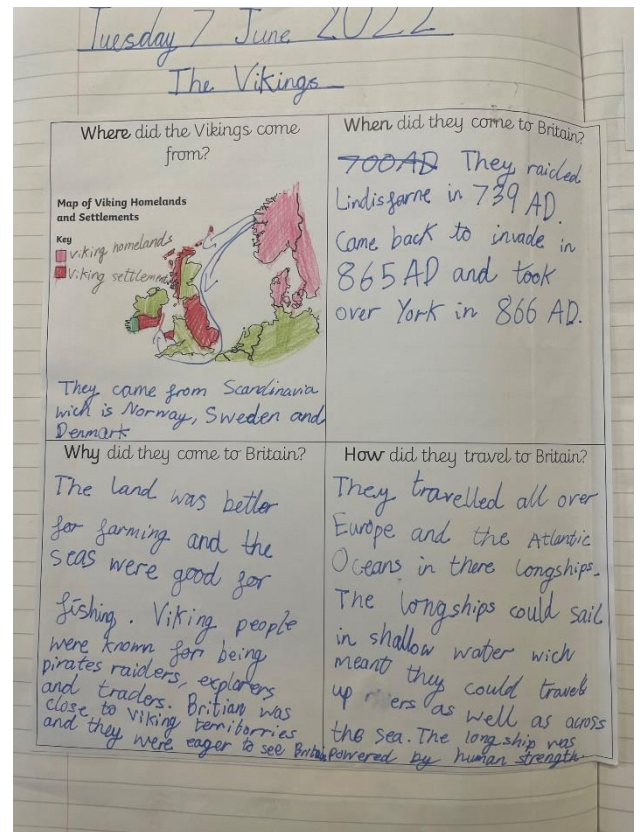 Tuesday 7 June 2022
The Vikings
Where did the Vikings come
from?
Map of Viking Homelands
and Settlements
Key
viking homelands
viking settlement
They came from Scandinavia
wich is Norway, Sweden and
Denmark
When did they come to Britain?
700AD They raided
Lindisfarne in 739 AD.
Came back to invade in
865 AD and took
over York in 866 AD.
Why did they come to Britain?
The land was better
for farming and the
seas were good for
fishing. Viking people
were known for being
pirates raiders, explorers
and traders. Britian was
close to Viking terriborries
and they were eager to see Britain
How did they travel to Britain?
They travelled all over
Europe and the Atlantic
Oceans in there longships.
The longships could sail
in shallow water wich
meant they could travel
up as well as across
the sea. The longship was
powered by human strength.